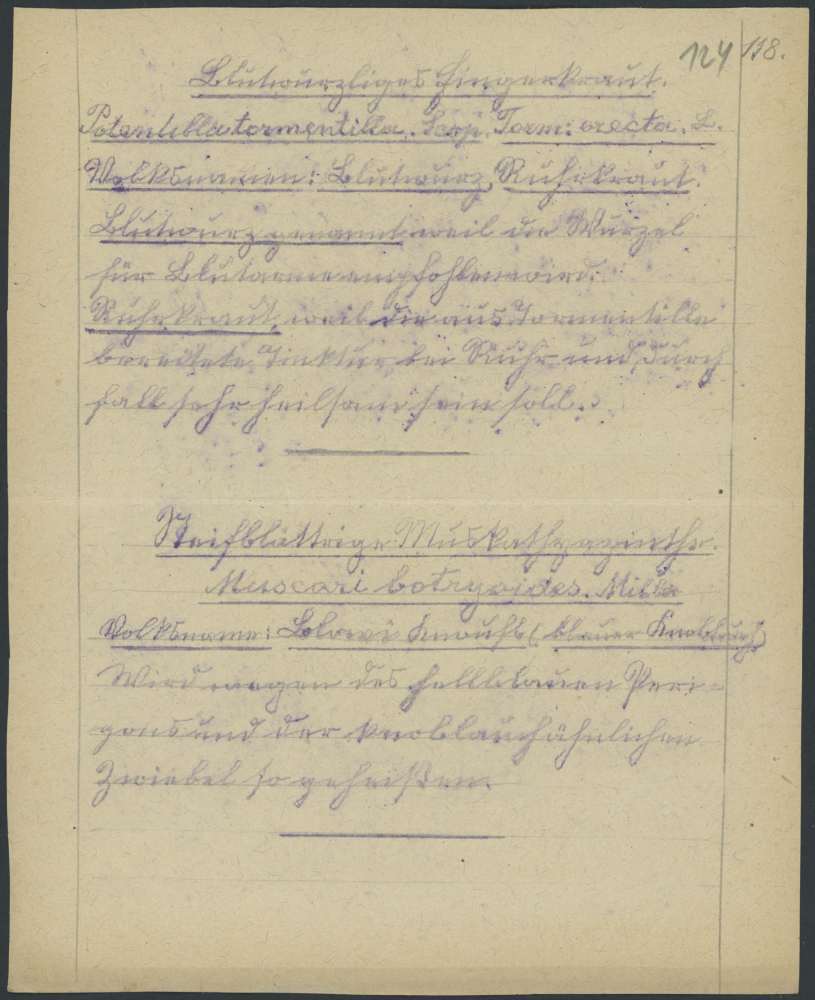 124 118.
Blutwurzliges Fingerkraut.
Potentilla tormentilla. Torm: erecta. L.
Volksnamen: Blutwurz, Ruhrkraut.
Blutwurz genannt weil die Wurzel
für Blutarme empfohlen wird.
Ruhrkraut, weil die aus Tormentille
bereitete Tinktur bei Ruhr und Durch
fall sehr heilsam sein soll.
Steifblättrige Muskathyazinthe.
Muscari botryoides. Mill.
Volksname: Blowi Knoufl ( blauer Knoblauch)
Wird wegen des hellblauen Peri-
gons und der knoblauchähnlichen
Zwiebel so geheißen.